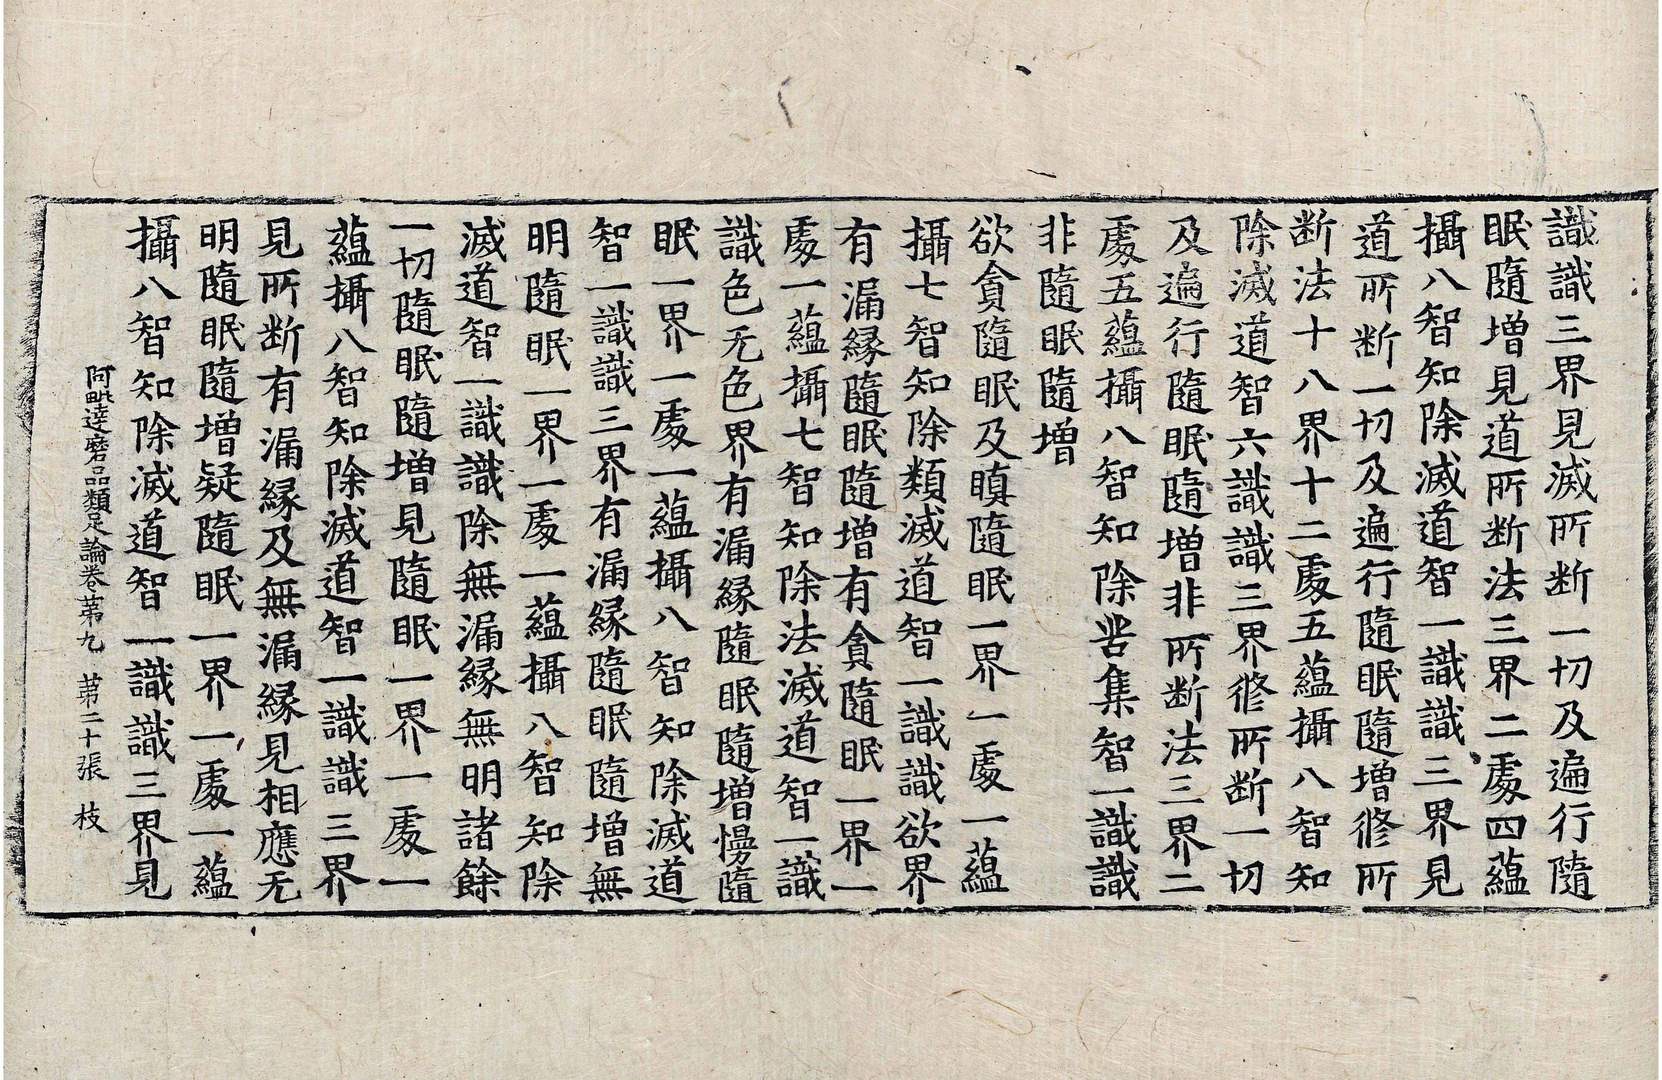 識識三界見滅所断一切及遍行隨
眠隨增見道所断法三界二處四蘊
攝八智知除滅道智一識識三界見
道所断一切及遍行隨眠隨增修所
断法十八界十二處五蘊攝八智知
除滅道智六識識三界修所断一切
及遍行隨眠隨增非所断法三界二
處五蘊攝八智知除苦集智一識識
非隨眠隨增
欲貪隨眠及瞋隨眠一界一處一蘊
攝七智知除類滅道智一識識欲界
有漏緣隨眠隨增有貪隨眠一界一
處一蘊攝七智知除法滅道智一識
識色无色界有漏緣隨眠隨增慢隨
眠一界一處一蘊攝八智知除滅道
智一識識三界有漏緣隨眠隨增無
明隨眠一界一處一蘊攝八智知除
滅道智一識識除無漏緣無明諸餘
一切隨眠隨增見隨眠一界一處一
蘊攝八智知除滅道智一識識三界
見所断有漏緣及無漏緣見相應无
明隨眠隨增疑隨眠一界一處一蘊
攝八智知除滅道智一識識三界見
阿毗達磨品類足論卷苐九 苐二十張 枝